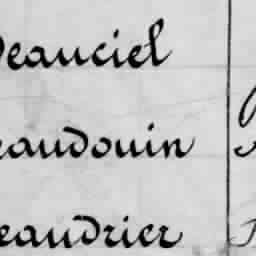 Beauciel
eaudouin
eaudrier